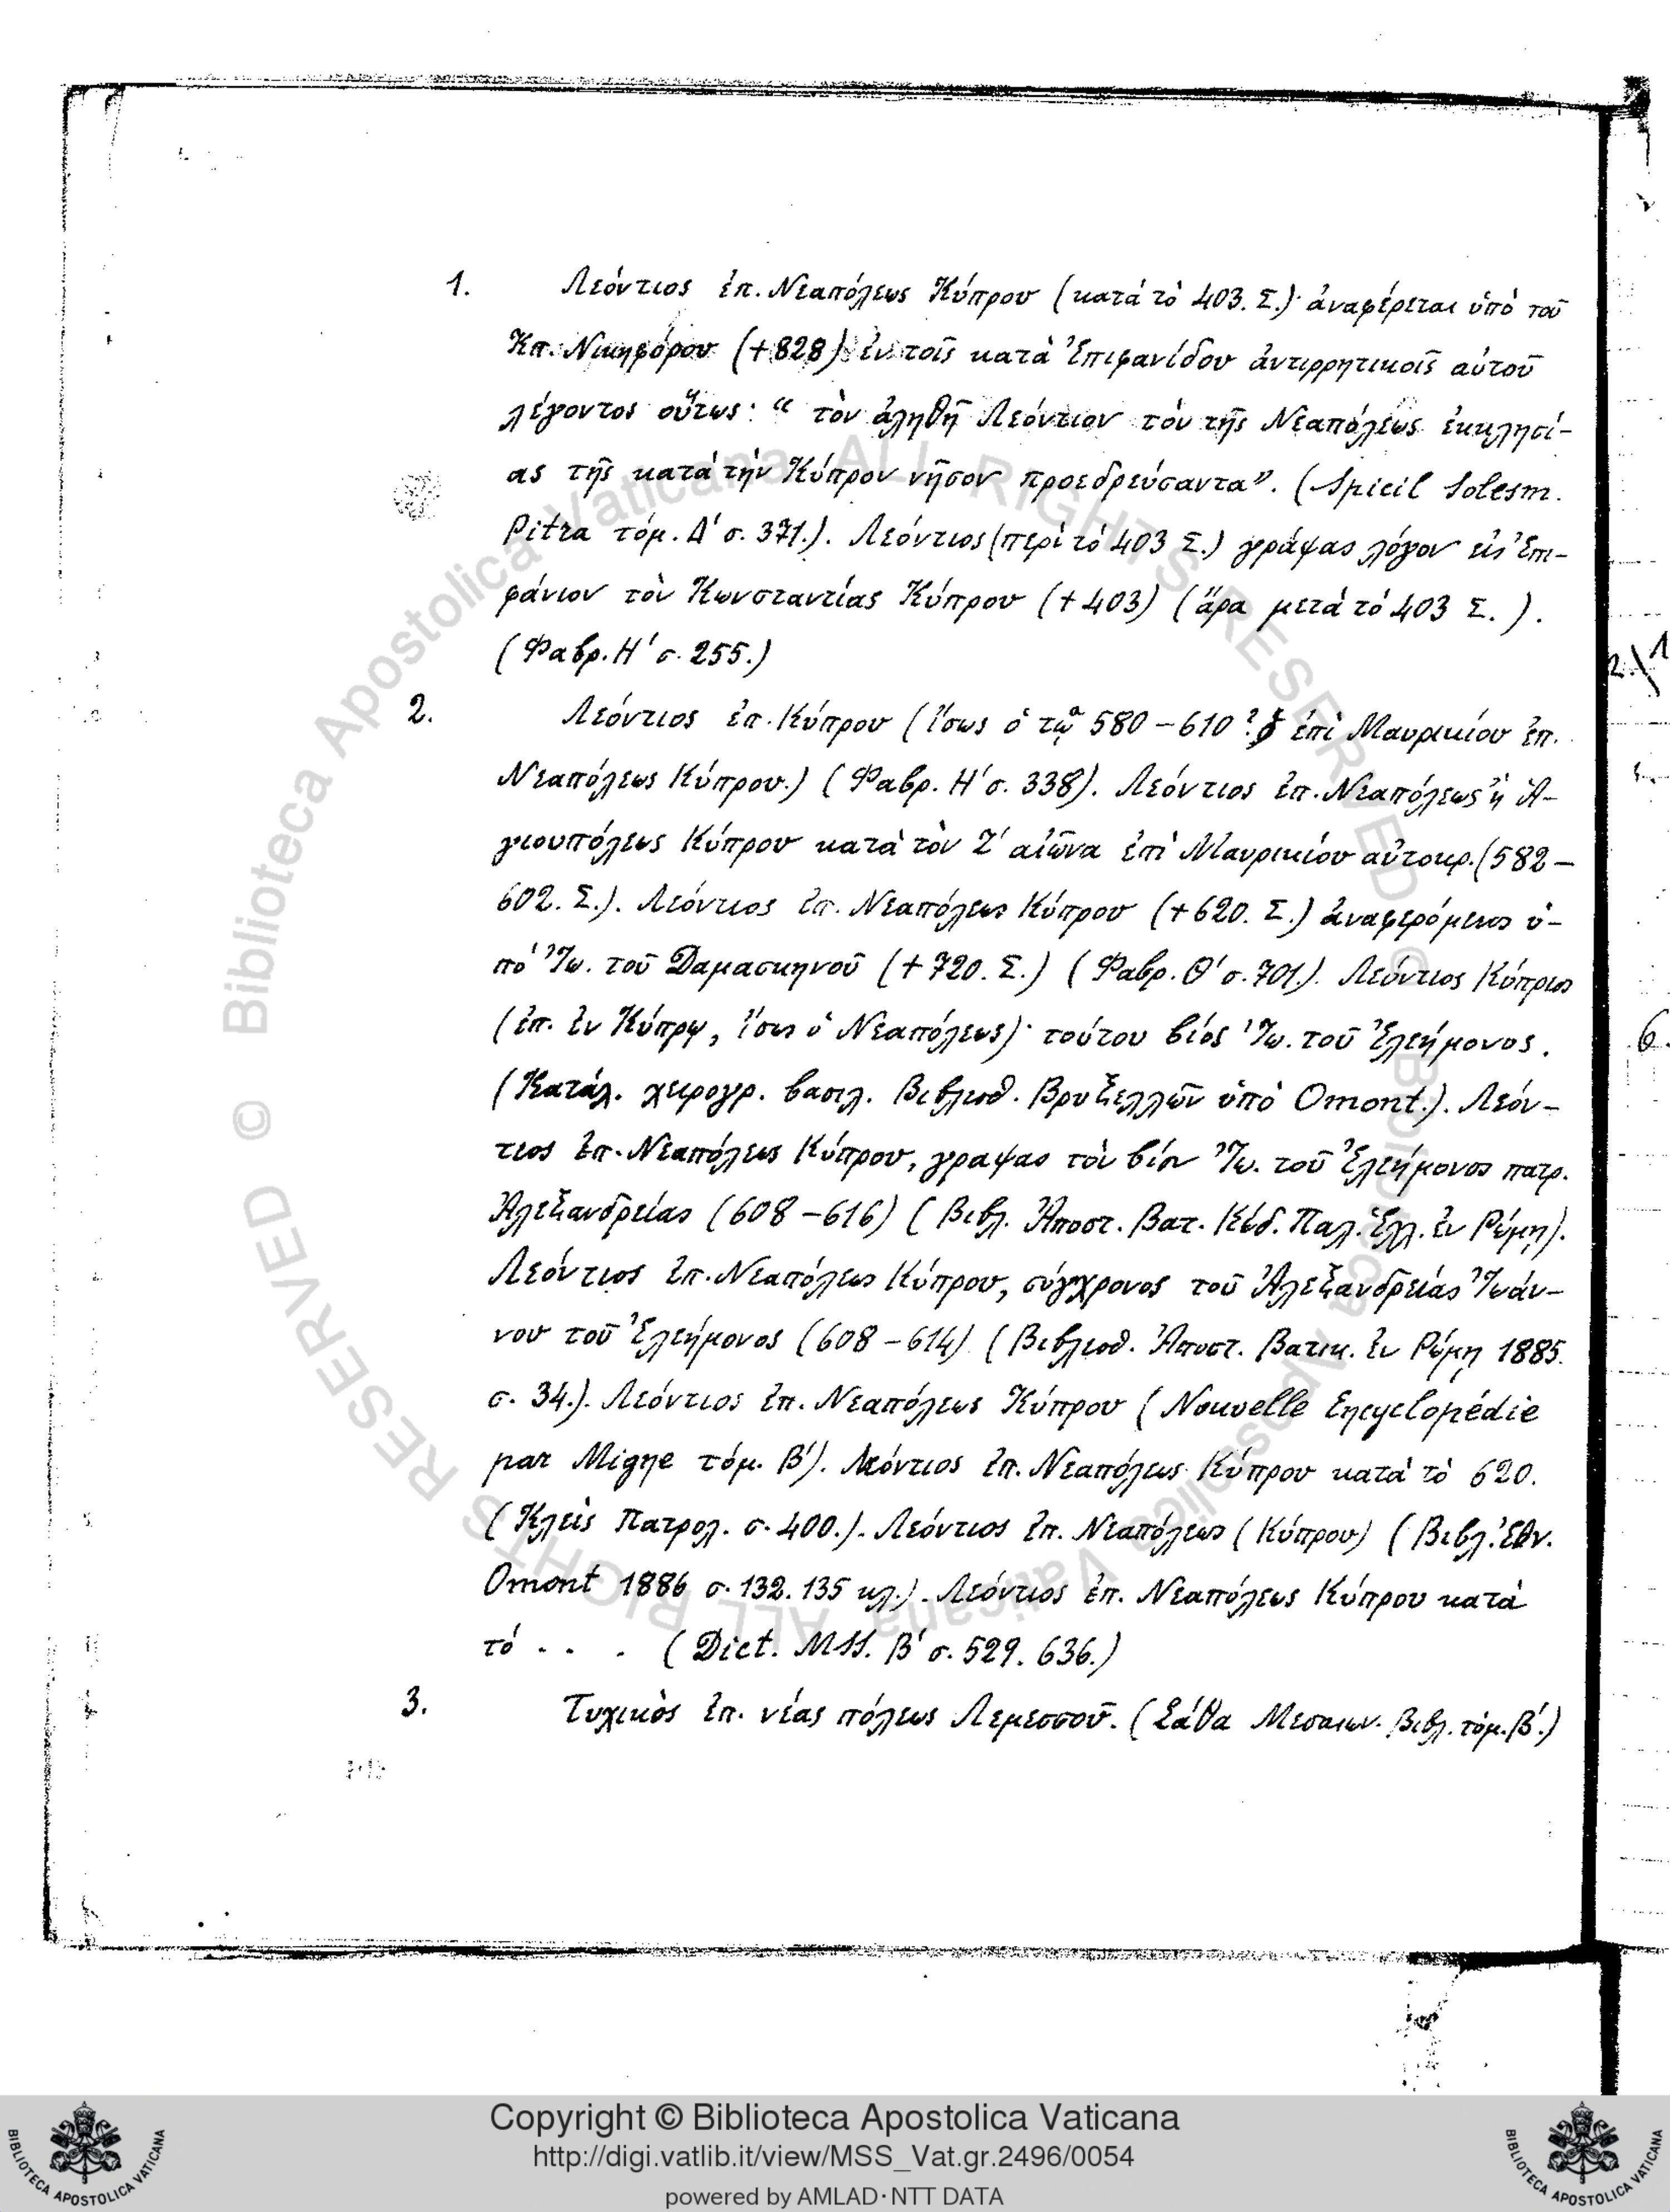 1. Λεόντιος ἐπ. Νεαπόλεως Κύπρου (κατά τὸ 403. Σ.)· ἀναφέρεται ὑπὸ τοῦ
Κπ. Νικηφόρου (+828) ἐν τοῖς κατὰ Ἐπιφανίδου ἀντιρρητικοῖς αὐτοῦ
λέγοντος οὕτως: “ τὸν ἀληθῆ Λεόντιον τὸν τῆς Νεαπόλεως ἐκκλησί-
ας τῆς κατά τὴν Κύπρον νῆσον προεδρεύσαντα”. (Spicil Solesm.
Pitra τόμ. Δ' σ. 371.). Λεόντιος (περὶ τό 403 Σ.) γράψας λόγον εἰς Ἐπι-
φάνιον τὸν Κωνσταντίας Κύπρου (+403) (ἄρα μετά τό 403 Σ. ).
(Φαβρ. Η' σ. 255.)
2. Λεόντιος ἐπ. Κύπρου (ἴσως ὁ τῷ 580 – 610? ἐπὶ Μαυρικίου ἐπ.
Νεαπόλεως Κύπρου.) (Φαβρ. Η' σ. 338). Λεόντιος ἐπ. Νεαπόλεως ἢ Ἁ-
γιουπόλεως Κύπρου κατὰ τὸν Ζ' αἰῶνα ἐπὶ Μαυρικίου αὐτοκρ. (582 –
602. Σ.). Λεόντιος ἐπ. Νεαπόλεως Κύπρου (+620. Σ.) ἀναφερόμενος ὑ-
πό Ἰω. τοῦ Δαμασκηνοῦ (+720. Σ.) (Φαβρ. Θ' σ. 701.). Λεόντιος Κύπριος
(ἐπ. ἐν Κύπρῳ, ἴσως ὁ Νεαπόλεως)· τούτου βίος Ἰω. τοῦ Ἐλεήμονος.
(Κατάλ. χειρογρ. βασιλ. Βιβλιοθ. Βρυξελλῶν ὑπὸ Omont.). Λεόν-
τιος ἐπ. Νεαπόλεως Κύπρου, γραψας τὸν βίον Ἰω. τοῦ Ἐλεήμονος πατρ.
Ἀλεξανδρείας (608 – 616) (Βιβλ. Ἀποστ. Βατ. Κώδ. Παλ. Ἑλλ. ἐν Ῥώμῃ).
Λεόντιος ἐπ. Νεαπόλεως Κύπρου, σύγχρονος τοῦ Ἀλεξανδρείας Ἰωάν-
νου τοῦ Ἐλεήμονος (608 – 614) (Βιβλιοθ. Ἀποστ. Βατικ. ἐν Ῥώμῃ 1885.
σ. 34.). Λεόντιος ἐπ. Νεαπόλεως Κύπρου (Nouvelle Encyclopédie
par Migne τόμ. Β'). Λεόντιος ἐπ. Νεαπόλεως Κύπρου κατά τὸ 620.
(Κλεὶς Πατρολ. σ. 400.). Λεόντιος ἐπ. Νεαπόλεως (Κύπρου) (Βιβλ. Ἐθν.
Omont 1886 σ. 132. 135 κλ.). Λεόντιος ἐπ. Νεαπόλεως Κύπρου κατά
τό . . . (Dict. MSS. Β' σ. 529. 636.)
3. Τυχικὸς ἐπ. νέας πόλεως Λεμεσσοῦ. (Σάθα Μεσαιων. Βιβλ. τόμ. Β'.)
2.) 1
6.
© Biblioteca Apostolica Vaticana ALL RIGHTS RESERVED © Biblioteca Apostolica Vaticana ALL RIGHTS RESERVED
Copyright © Biblioteca Apostolica Vaticana
http://digi.vatlib.it/view/MSS_Vat.gr.2496/0054
powered by AMLAD·NTT DATA
BIBLIOTECA APOSTOLICA VATICANA
BIBLIOTECA APOSTOLICA VATICANA